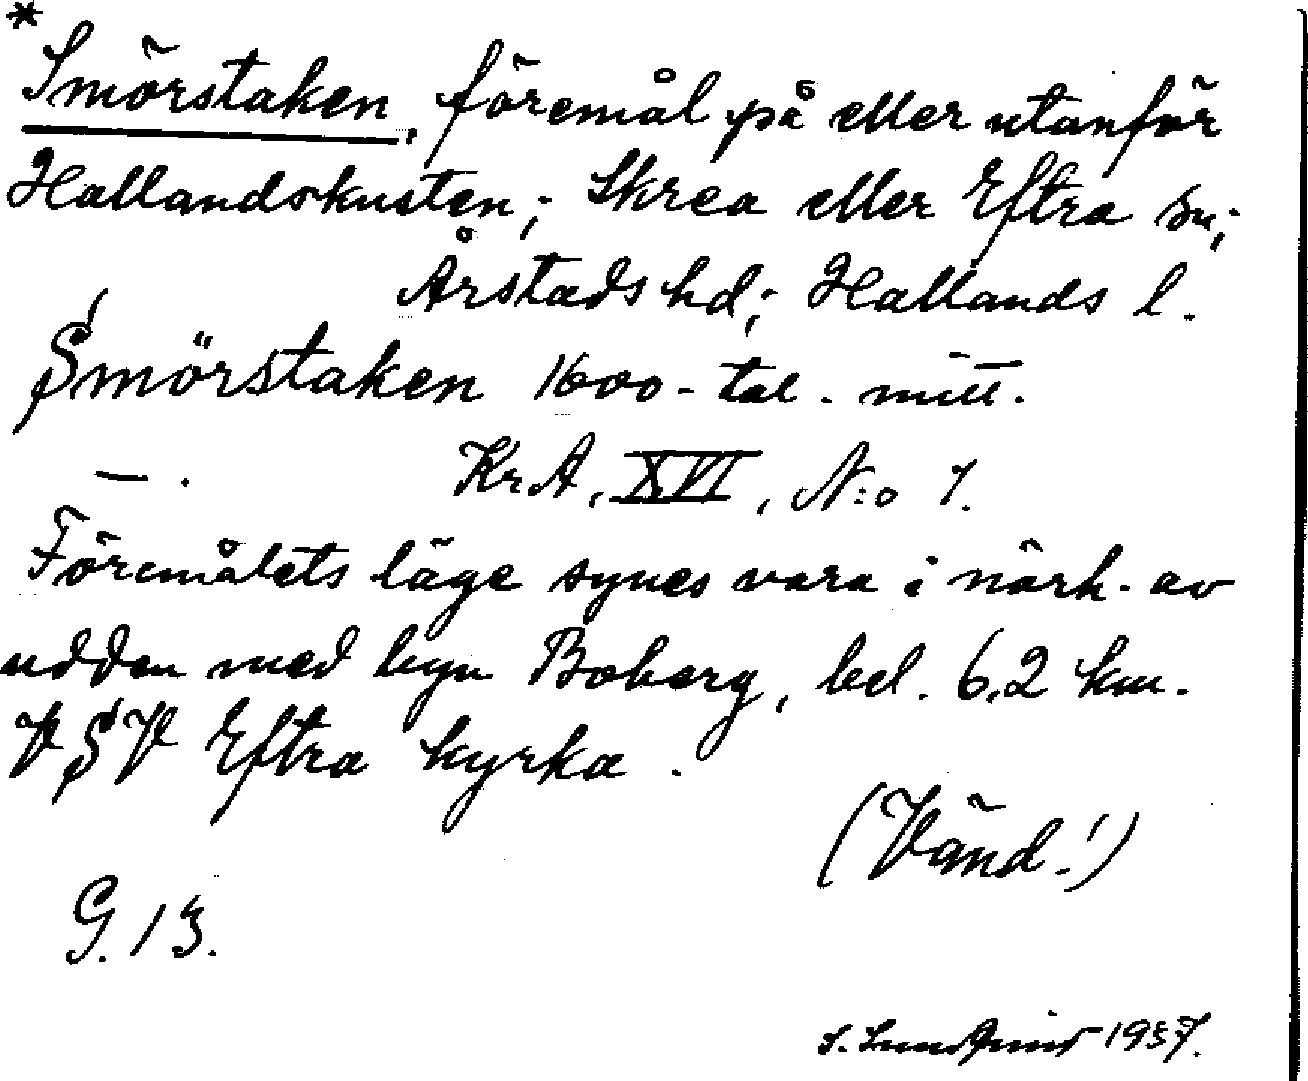 *
Smörstaken, föremål på eller utanför
Hallandskusten; Skrea eller Eftra sn;
Årstads hd; Hallands l.
Smörstaken 1600-tal. mitt.
— . KrA, XVI, N:o 7.
Föremålets läge synes vara i närh. av
udden med byn Boberg, bel. 6,2 km.
VSV Eftra kyrka.
(Vänd!)
G. 13.
S. 1937.